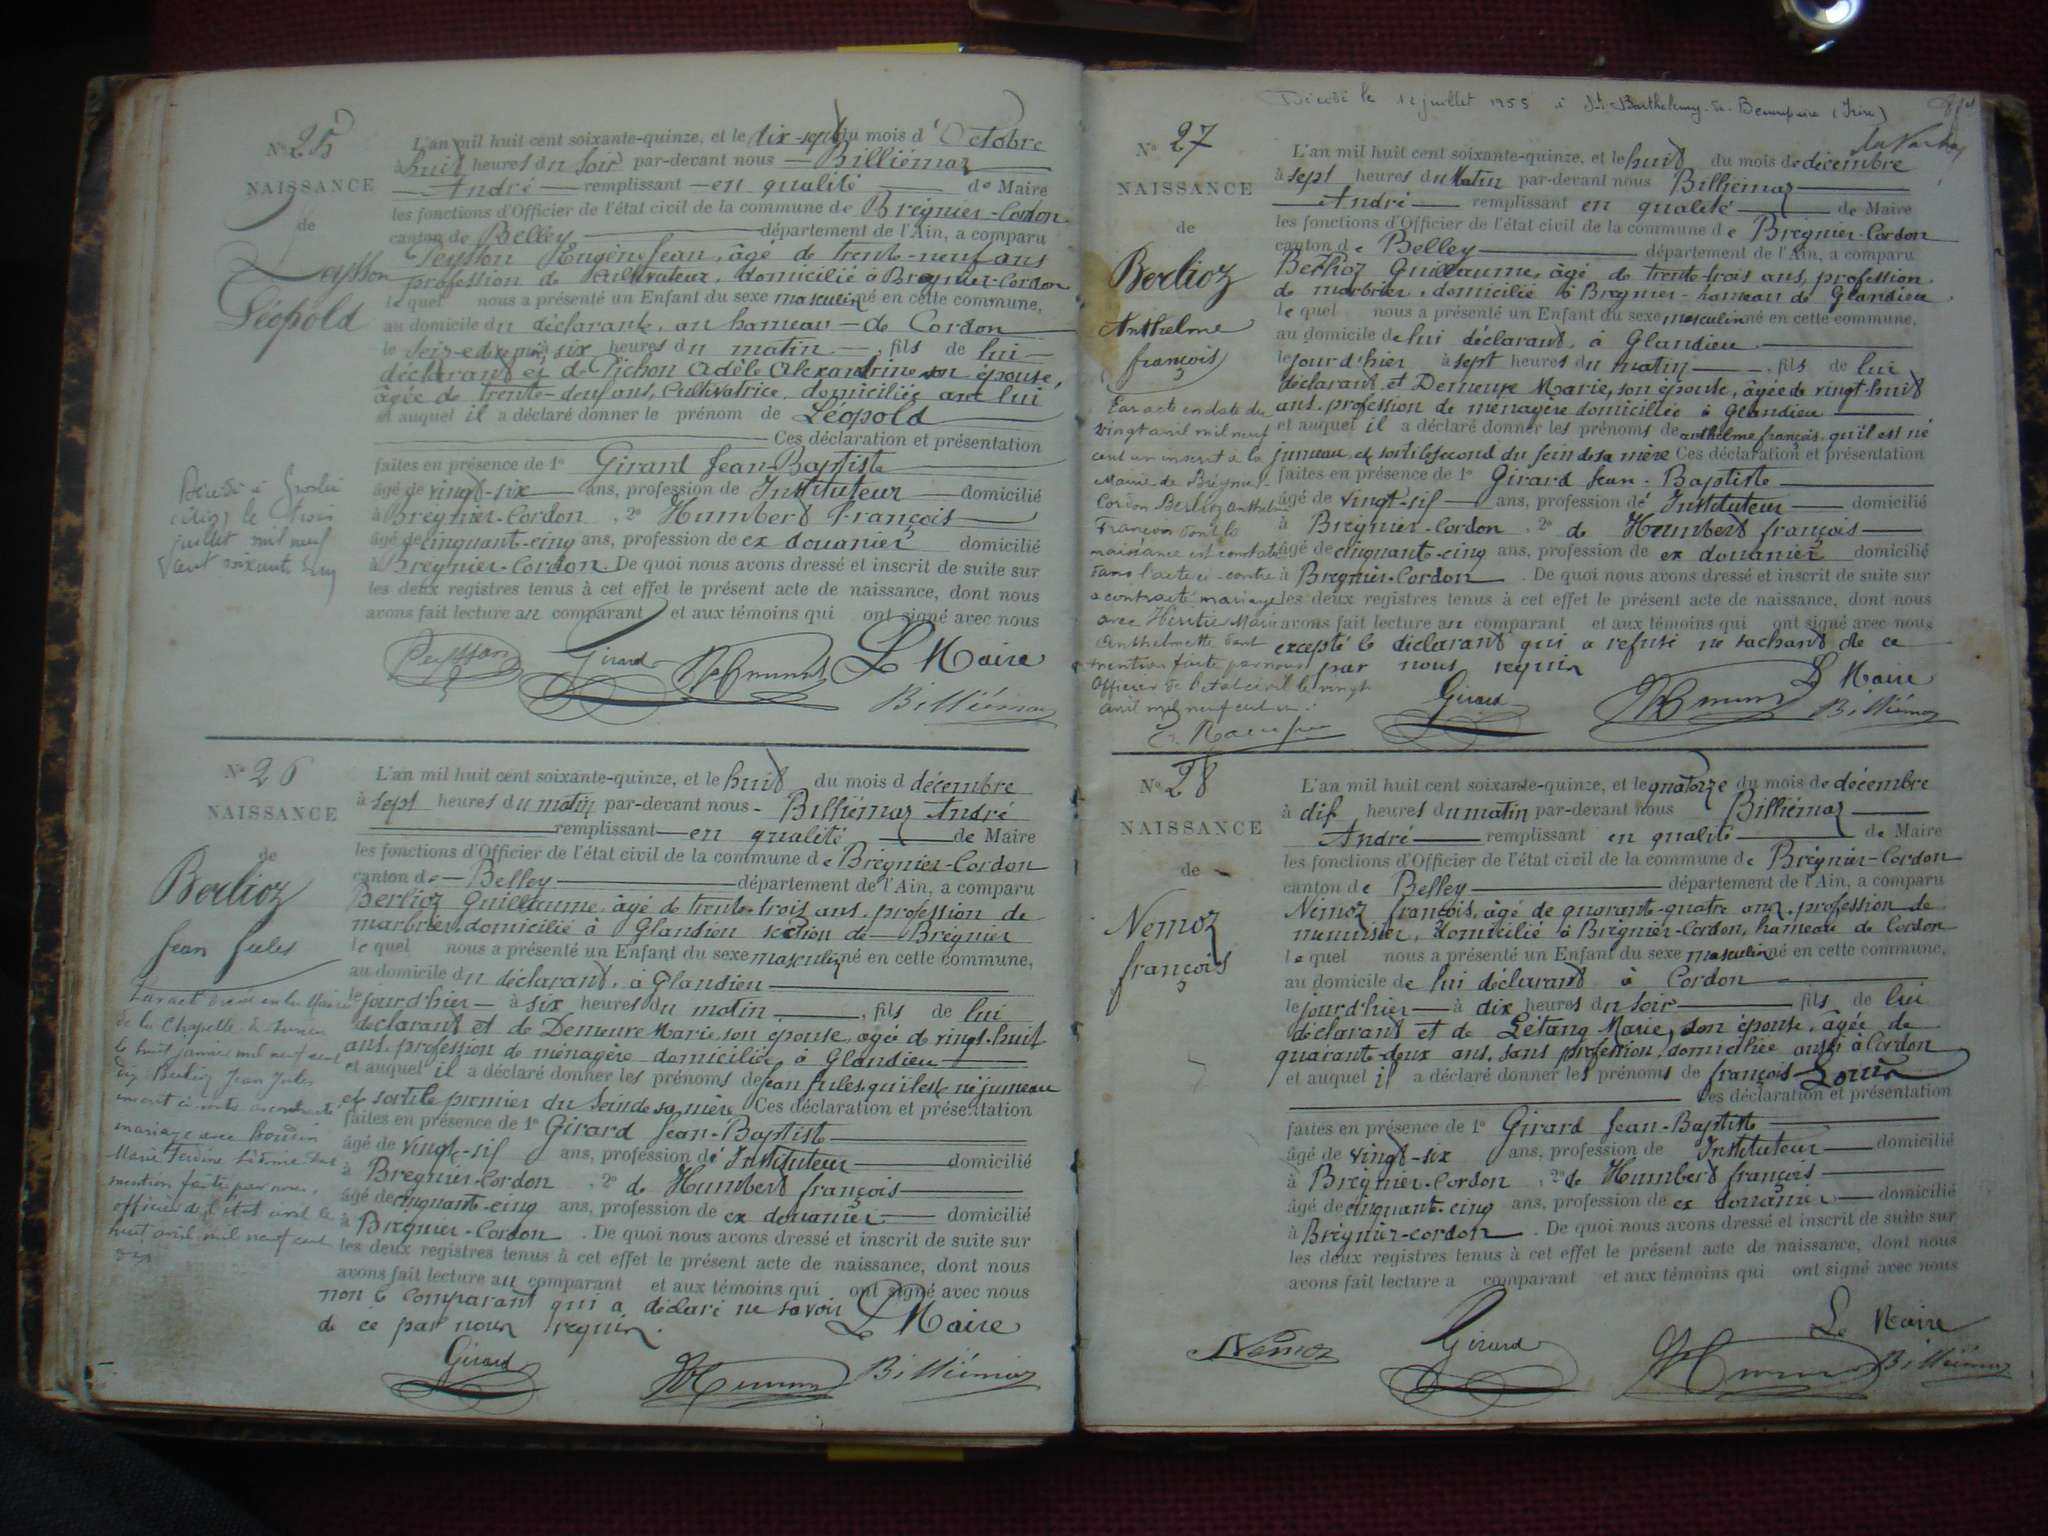 N° 25
NAISSANCE
de
Peysson
Léopold
L'an mil huit cent soixante-quinze, et le dix-sept du mois d'Octobre
à huit heures du soir par-devant nous Billiémaz
André remplissant en qualité de Maire
les fonctions d'Officier de l'état civil de la commune de Brégnier-Cordon
canton de Belley département de l'Ain, a comparu
Peysson Eugène Jean, âgé de trente-neuf ans
profession de Cultivateur, domicilié à Brégnier-Cordon
lequel nous a présenté un Enfant du sexe masculin né en cette commune,
au domicile du déclarant, au hameau de Cordon
le six heures du matin, fils de lui
déclarant et de Pichon Adèle Alexandrine son épouse,
âgée de trente-deux ans, Cultivatrice, domiciliée avec lui
et auquel il a déclaré donner le prénom de Léopold
Ces déclaration et présentation
faites en présence de 1° Girard Jean-Baptiste
âgé de vingt-six ans, profession de Instituteur domicilié
à Brégnier-Cordon, 2° Humbert François
âgé de cinquante-cinq ans, profession de ex douanier domicilié
à Brégnier-Cordon. De quoi nous avons dressé et inscrit de suite sur
les deux registres tenus à cet effet le présent acte de naissance, dont nous
avons fait lecture au comparant et aux témoins qui ont signé avec nous
Peysson Girard Humbert Le Maire
Billiémaz
Décédé à
le trois
juillet mil neuf
cent soixante cinq
N° 26
NAISSANCE
de
Berlioz
Jean Jules
L'an mil huit cent soixante-quinze, et le huit du mois d décembre
à sept heures du matin par-devant nous Billiémaz André
remplissant en qualité de Maire
les fonctions d'Officier de l'état civil de la commune de Brégnier-Cordon
canton de Belley département de l'Ain, a comparu
Berlioz Guillaume, âgé de trente-trois ans, profession de
marbrier, domicilié à Glandieu section de Brégnier
lequel nous a présenté un Enfant du sexe masculin né en cette commune,
au domicile du déclarant, à Glandieu
le jour d'hier à six heures du matin, fils de lui
déclarant et de Demeure Marie, son épouse, âgée de vingt-huit
ans, profession de ménagère domiciliée, à Glandieu
et auquel il a déclaré donner les prénoms de Jean Jules, qu'il est né jumeau
et sorti le premier du sein de sa mère Ces déclaration et présentation
faites en présence de 1° Girard Jean-Baptiste
âgé de vingt-six ans, profession de Instituteur domicilié
à Brégnier-Cordon, 2° de Humbert françois
âgé de cinquante-cinq ans, profession de ex douanier domicilié
à Brégnier-Cordon. De quoi nous avons dressé et inscrit de suite sur
les deux registres tenus à cet effet le présent acte de naissance, dont nous
avons fait lecture au comparant et aux témoins qui ont signé avec nous
non le comparant qui a déclaré ne savoir
de ce par nous requis.
Le Maire
Girard Humbert Billiémaz
de la Chapelle de
le huit janvier mil neuf cent
dix Berlioz Jean Jules
inscrit ci-contre a contracté
mariage avec
Marie
mention faite par nous,
officier de l'état civil le
huit avril mil neuf cent
dix
Décédé le 12 juillet 1955 à St Barthélemy-de-Beaurepaire (Isère)
N° 27
NAISSANCE
de
Berlioz
Anthelme
françois
L'an mil huit cent soixante-quinze, et le huit du mois de décembre
à sept heures du Matin par-devant nous Billiémaz
André remplissant en qualité de Maire
les fonctions d'Officier de l'état civil de la commune de Brégnier-Cordon
canton de Belley département de l'Ain, a comparu
Berlioz Guillaume, âgé de trente-trois ans, profession
de marbrier, domicilié à Brégnier-hameau de Glandieu
lequel nous a présenté un Enfant du sexe masculin né en cette commune,
au domicile de lui déclarant, à Glandieu
le jour d'hier à sept heures du matin, fils de lui
déclarant, et Demeure Marie, son épouse, âgée de vingt-huit
ans, profession de ménagère domiciliée à Glandieu
et auquel il a déclaré donner les prénoms de anthelme françois, qu'il est né
jumeau et sorti le second du sein de sa mère Ces déclaration et présentation
faites en présence de 1° Girard Jean-Baptiste
âgé de vingt-six ans, profession de Instituteur domicilié
à Brégnier-Cordon, 2° de Humbert françois
âgé de cinquante-cinq ans, profession de ex douanier domicilié
à Brégnier-Cordon. De quoi nous avons dressé et inscrit de suite sur
les deux registres tenus à cet effet le présent acte de naissance, dont nous
avons fait lecture au comparant et aux témoins qui ont signé avec nous
excepté le déclarant qui a refusé ne sachant de ce
par nous requis
Le Maire
Girard Humbert Billiémaz
Par acte en date du
vingt avril mil neuf
cent un inscrit à la
Mairie de Brégnier
Cordon Berlioz Anthelme
François dont la
naissance est constatée
dans l'acte ci-contre
a contracté mariage
avec Marie
Anthelmette dont
mention faite par nous
Officier de l'état civil le vingt
avril mil neuf cent un.
N° 28
NAISSANCE
de
Nemoz
françois
L'an mil huit cent soixante-quinze, et le quatorze du mois de décembre
à dix heures du matin par-devant nous Billiémaz
André remplissant en qualité de Maire
les fonctions d'Officier de l'état civil de la commune de Brégnier-Cordon
canton de Belley département de l'Ain, a comparu
Némoz françois, âgé de quarante-quatre ans, profession de
menuisier, domicilié à Brégnier-Cordon, hameau de Cordon
lequel nous a présenté un Enfant du sexe masculin né en cette commune,
au domicile de lui déclarant à Cordon
le jour d'hier à dix heures du soir fils de lui
déclarant et de Létang Marie, son épouse, âgée de
quarante-deux ans, sans profession, domiciliée aussi à Cordon
et auquel il a déclaré donner les prénoms de françois Louis
Ces déclaration et présentation
faites en présence de 1° Girard Jean-Baptiste
âgé de vingt-six ans, profession de Instituteur domicilié
à Brégnier-Cordon, 2° de Humbert françois
âgé de cinquante-cinq ans, profession de ex douanier domicilié
à Brégnier-cordon. De quoi nous avons dressé et inscrit de suite sur
les deux registres tenus à cet effet le présent acte de naissance, dont nous
avons fait lecture a comparant et aux témoins qui ont signé avec nous
Le Maire
Némoz Girard Humbert Billiémaz